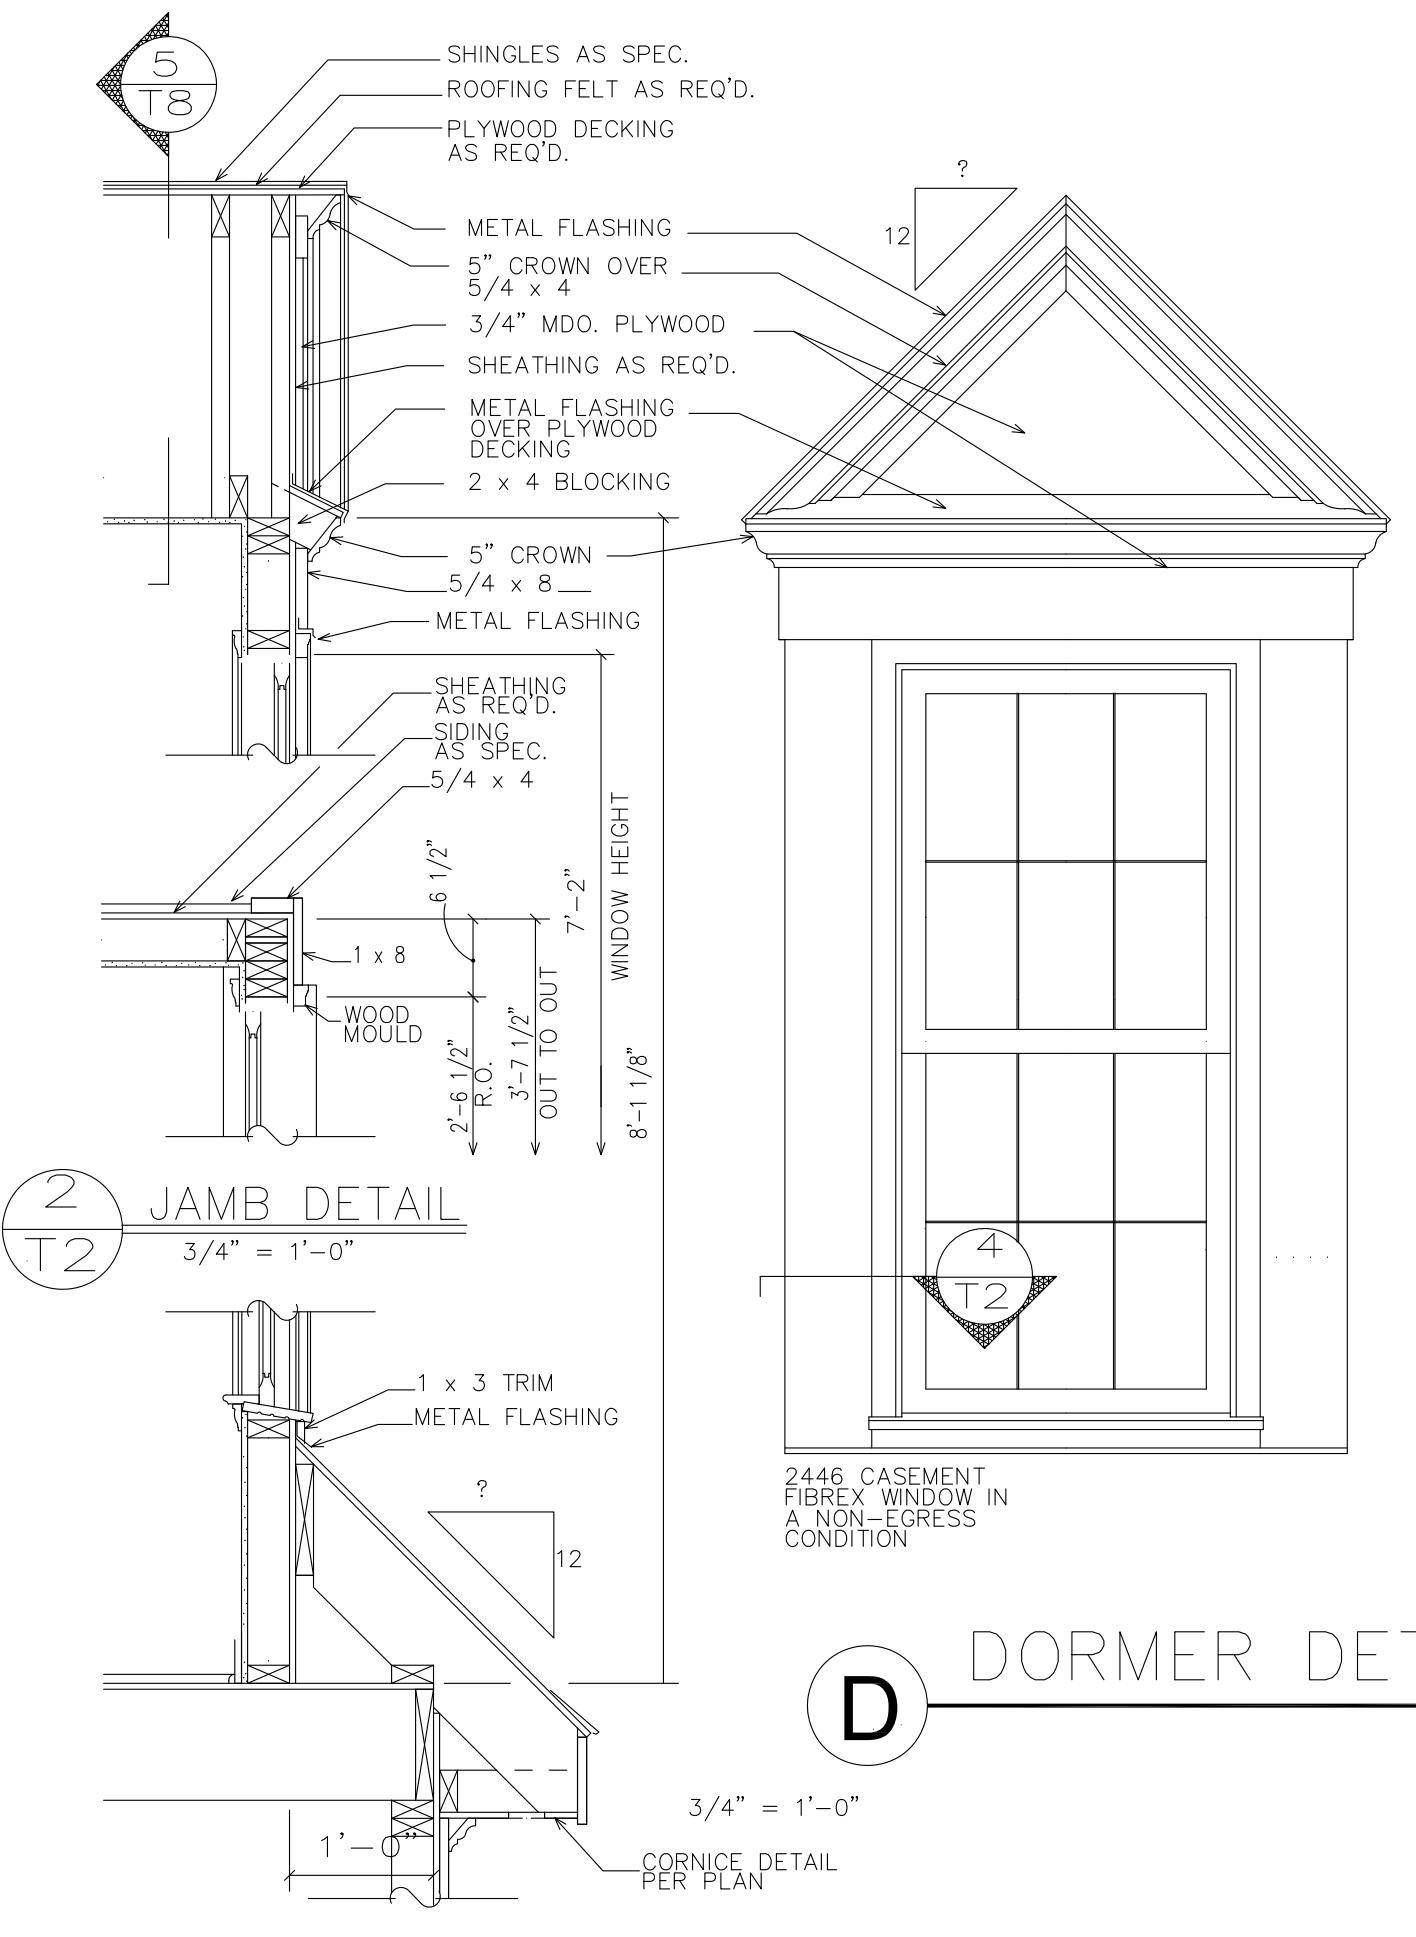 5
T8
SHINGLES AS SPEC.
ROOFING FELT AS REQ'D.
PLYWOOD DECKING
AS REQ'D.
METAL FLASHING
5" CROWN OVER
5/4 x 4
3/4" MDO. PLYWOOD
SHEATHING AS REQ'D.
METAL FLASHING
OVER PLYWOOD
DECKING
2 x 4 BLOCKING
5" CROWN
5/4 x 8
METAL FLASHING
?
12
SHEATHING
AS REQ'D.
SIDING
AS SPEC.
5/4 x 4
6 1/2"
1 x 8
WOOD
MOULD
2'-6 1/2"
R.O.
3'-7 1/2"
OUT TO OUT
7'-2"
WINDOW HEIGHT
8'-1 1/8"
2
T2
JAMB DETAIL
3/4" = 1'-0"
4
T2
1 x 3 TRIM
METAL FLASHING
?
12
2446 CASEMENT
FIBREX WINDOW IN
A NON-EGRESS
CONDITION
D
DORMER DET
3/4" = 1'-0"
1'-0"
CORNICE DETAIL
PER PLAN